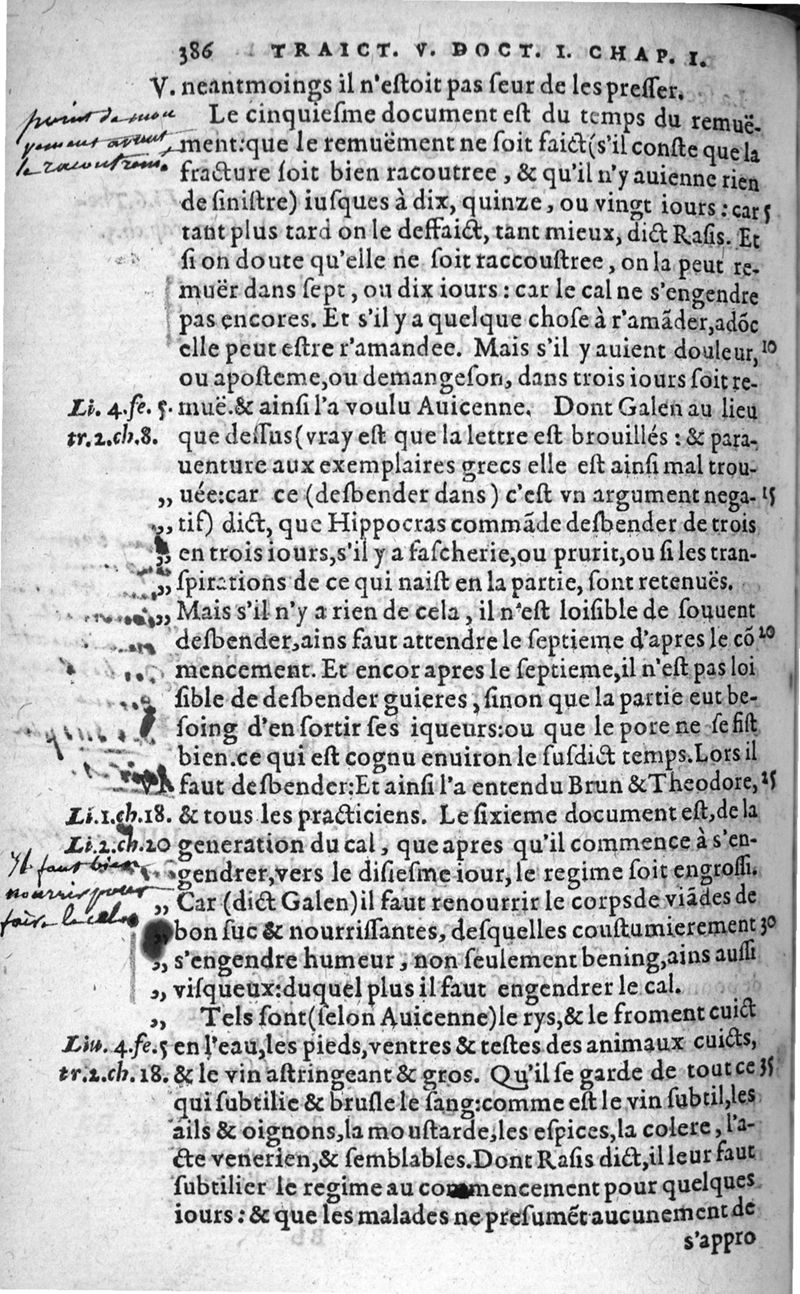 386 TRAICT. V. DOCT. I. CHAP. I.
V. neantmoings il n'eſtoit pas ſeur de les preſſer.
Le cinquieſme document eſt du temps du remuë-
ment: que le remuëment ne ſoit faict (s'il conſte que la
fracture ſoit bien racoutree, & qu'il n'y auienne rien
de ſiniſtre) iuſques à dix, quinze, ou vingt iours: car 5
tant plus tard on le deffaict, tant mieux, dict Raſis. Et
ſi on doute qu'elle ne ſoit raccouſtree, on la peut re-
muër dans ſept, ou dix iours: car le cal ne s'engendre
pas encores. Et s'il y a quelque choſe à r'amãder, adõc
elle peut eſtre r'amandee. Mais s'il y auient douleur, 10
ou apoſteme, ou demangeſon, dans trois iours ſoit re-
Li. 4. fe. 5. muë. & ainſi l'a voulu Auicenne. Dont Galen au lieu
tr. 2. ch. 8. que deſſus (vray eſt que la lettre eſt brouillés: & para-
uenture aux exemplaires grecs elle eſt ainſi mal trou-
„ uée: car ce (desbender dans) c'eſt vn argument nega- 15
„ tif) dict, que Hippocras commãde desbender de trois
„ en trois iours, s'il y a faſcherie, ou prurit, ou ſi les tran-
„ ſpirations de ce qui naiſt en la partie, ſont retenuës.
„ Mais s'il n'y a rien de cela, il n'eſt loiſible de ſouuent
desbender, ains faut attendre le ſeptieme d'apres le cõ 20
mencement. Et encor apres le ſeptieme, il n'eſt pas loi
ſible de desbender guieres, ſinon que la partie eut be-
ſoing d'en ſortir ſes iqueurs: ou que le pore ne ſe fiſt
bien. ce qui eſt cognu enuiron le ſuſdict temps. Lors il
faut desbender: Et ainſi l'a entendu Brun & Theodore, 25
Li. 1. ch. 18. & tous les practiciens. Le ſixieme document eſt, de la
Li. 2. ch. 20 generation du cal, que apres qu'il commence à s'en-
gendrer, vers le diſieſme iour, le regime ſoit engroſſi.
„ Car (dict Galen) il faut renourrir le corps de viãdes de
bon ſuc & nourriſſantes, deſquelles couſtumierement 30
„ s'engendre humeur, non ſeulement bening, ains auſſi
„ viſqueux: duquel plus il faut engendrer le cal.
„ Tels ſont (ſelon Auicenne) le rys, & le froment cuict
Liu. 4. fe. 5 en l'eau, les pieds, ventres & teſtes des animaux cuicts,
tr. 2. ch. 18. & le vin aſtringeant & gros. Qu'il ſe garde de tout ce 35
qui ſubtilie & bruſle le ſang: comme eſt le vin ſubtil, les
ails & oignons, la mouſtarde, les eſpices, la colere, l'a-
cte venerien, & ſemblables. Dont Raſis dict, il leur faut
ſubtilier le regime au commencement pour quelques
iours: & que les malades ne preſumẽt aucunement de
s'appro
point de mou
uement avant
le racoutrem.
Il faut bien
nourrir pour
faire le cal